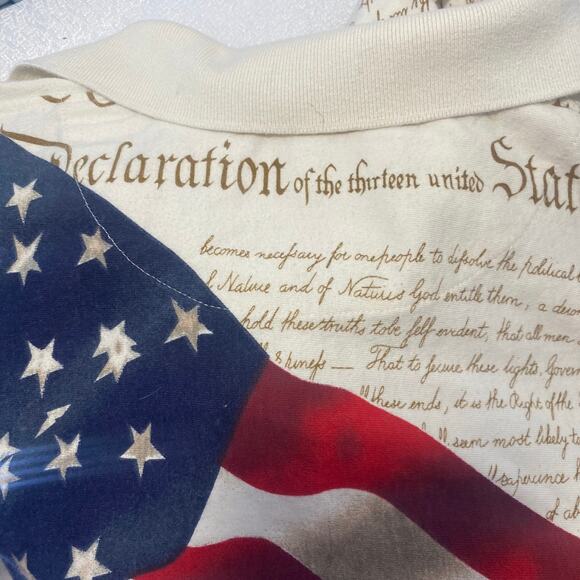 Declaration of the thirteen united Stat
becomes necessary for one people to dissolve the political
Nature and of Nature's God entitle them, a
hold these truths to be self evident, that all men
That to secure these
these ends, it is the Right of the
seem most likely to
of